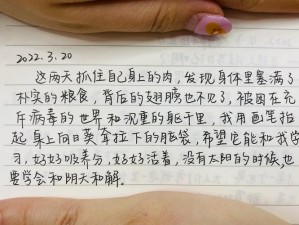 2022.3.20
这两天抓住自己身上的肉，发现身体里塞满了
朴实的粮食，背后的翅膀也不见了，被困在充
斥病毒的世界和沉重的躯干里，我用画笔抬
起桌上向日葵耷拉下的脑袋，希望它能和我学
习，好好吸养分，好好活着，没有太阳的时候，也
要学会和阴天和解。